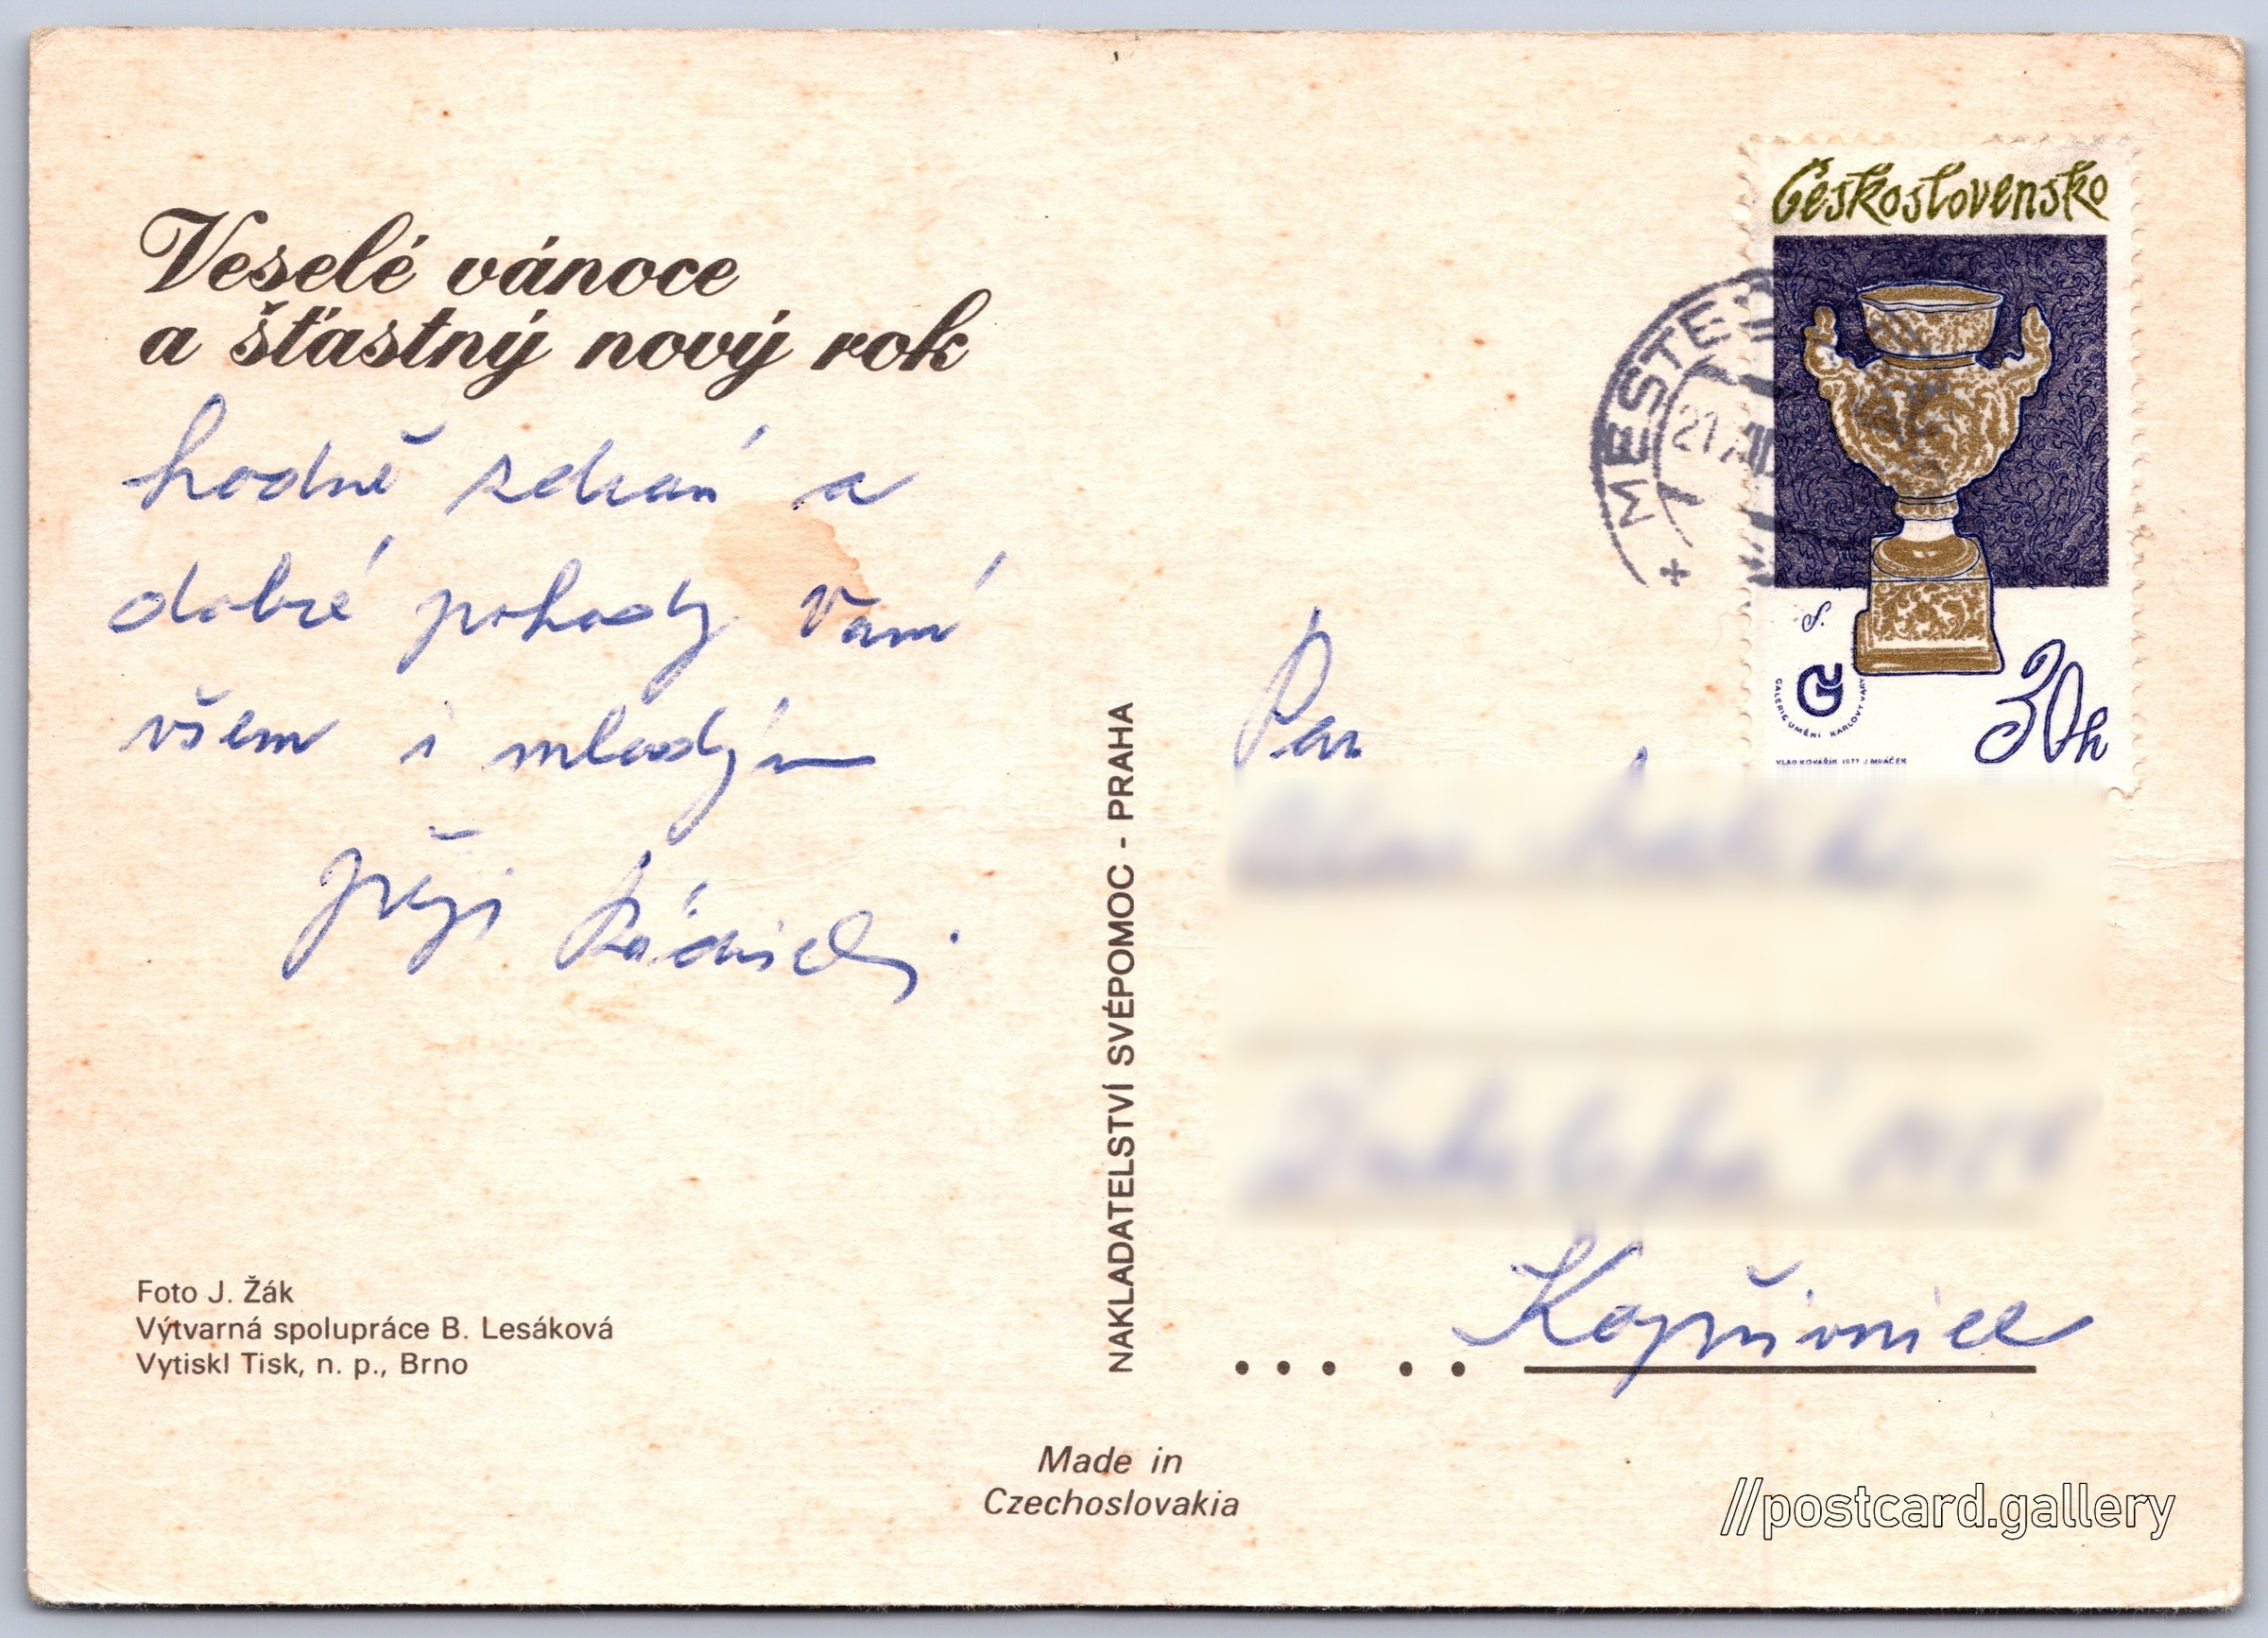 Veselé vánoce
a šťastný nový rok
hodně zdraví a
dobré pohody Vám
všem i mladým
přeji
Foto J. Žák
Výtvarná spolupráce B. Lesáková
Vytiskl Tisk, n. p., Brno
NAKLADATELSTVÍ SVÉPOMOC - PRAHA
Made in
Czechoslovakia
Československo
30h
GALERIE UMĚNÍ KARLOVY VARY
VLAD. KOVAŘÍK 1977 J. MRÁČEK
MĚSTEC
21.XII
Pan
Kopřivnice
//postcard.gallery